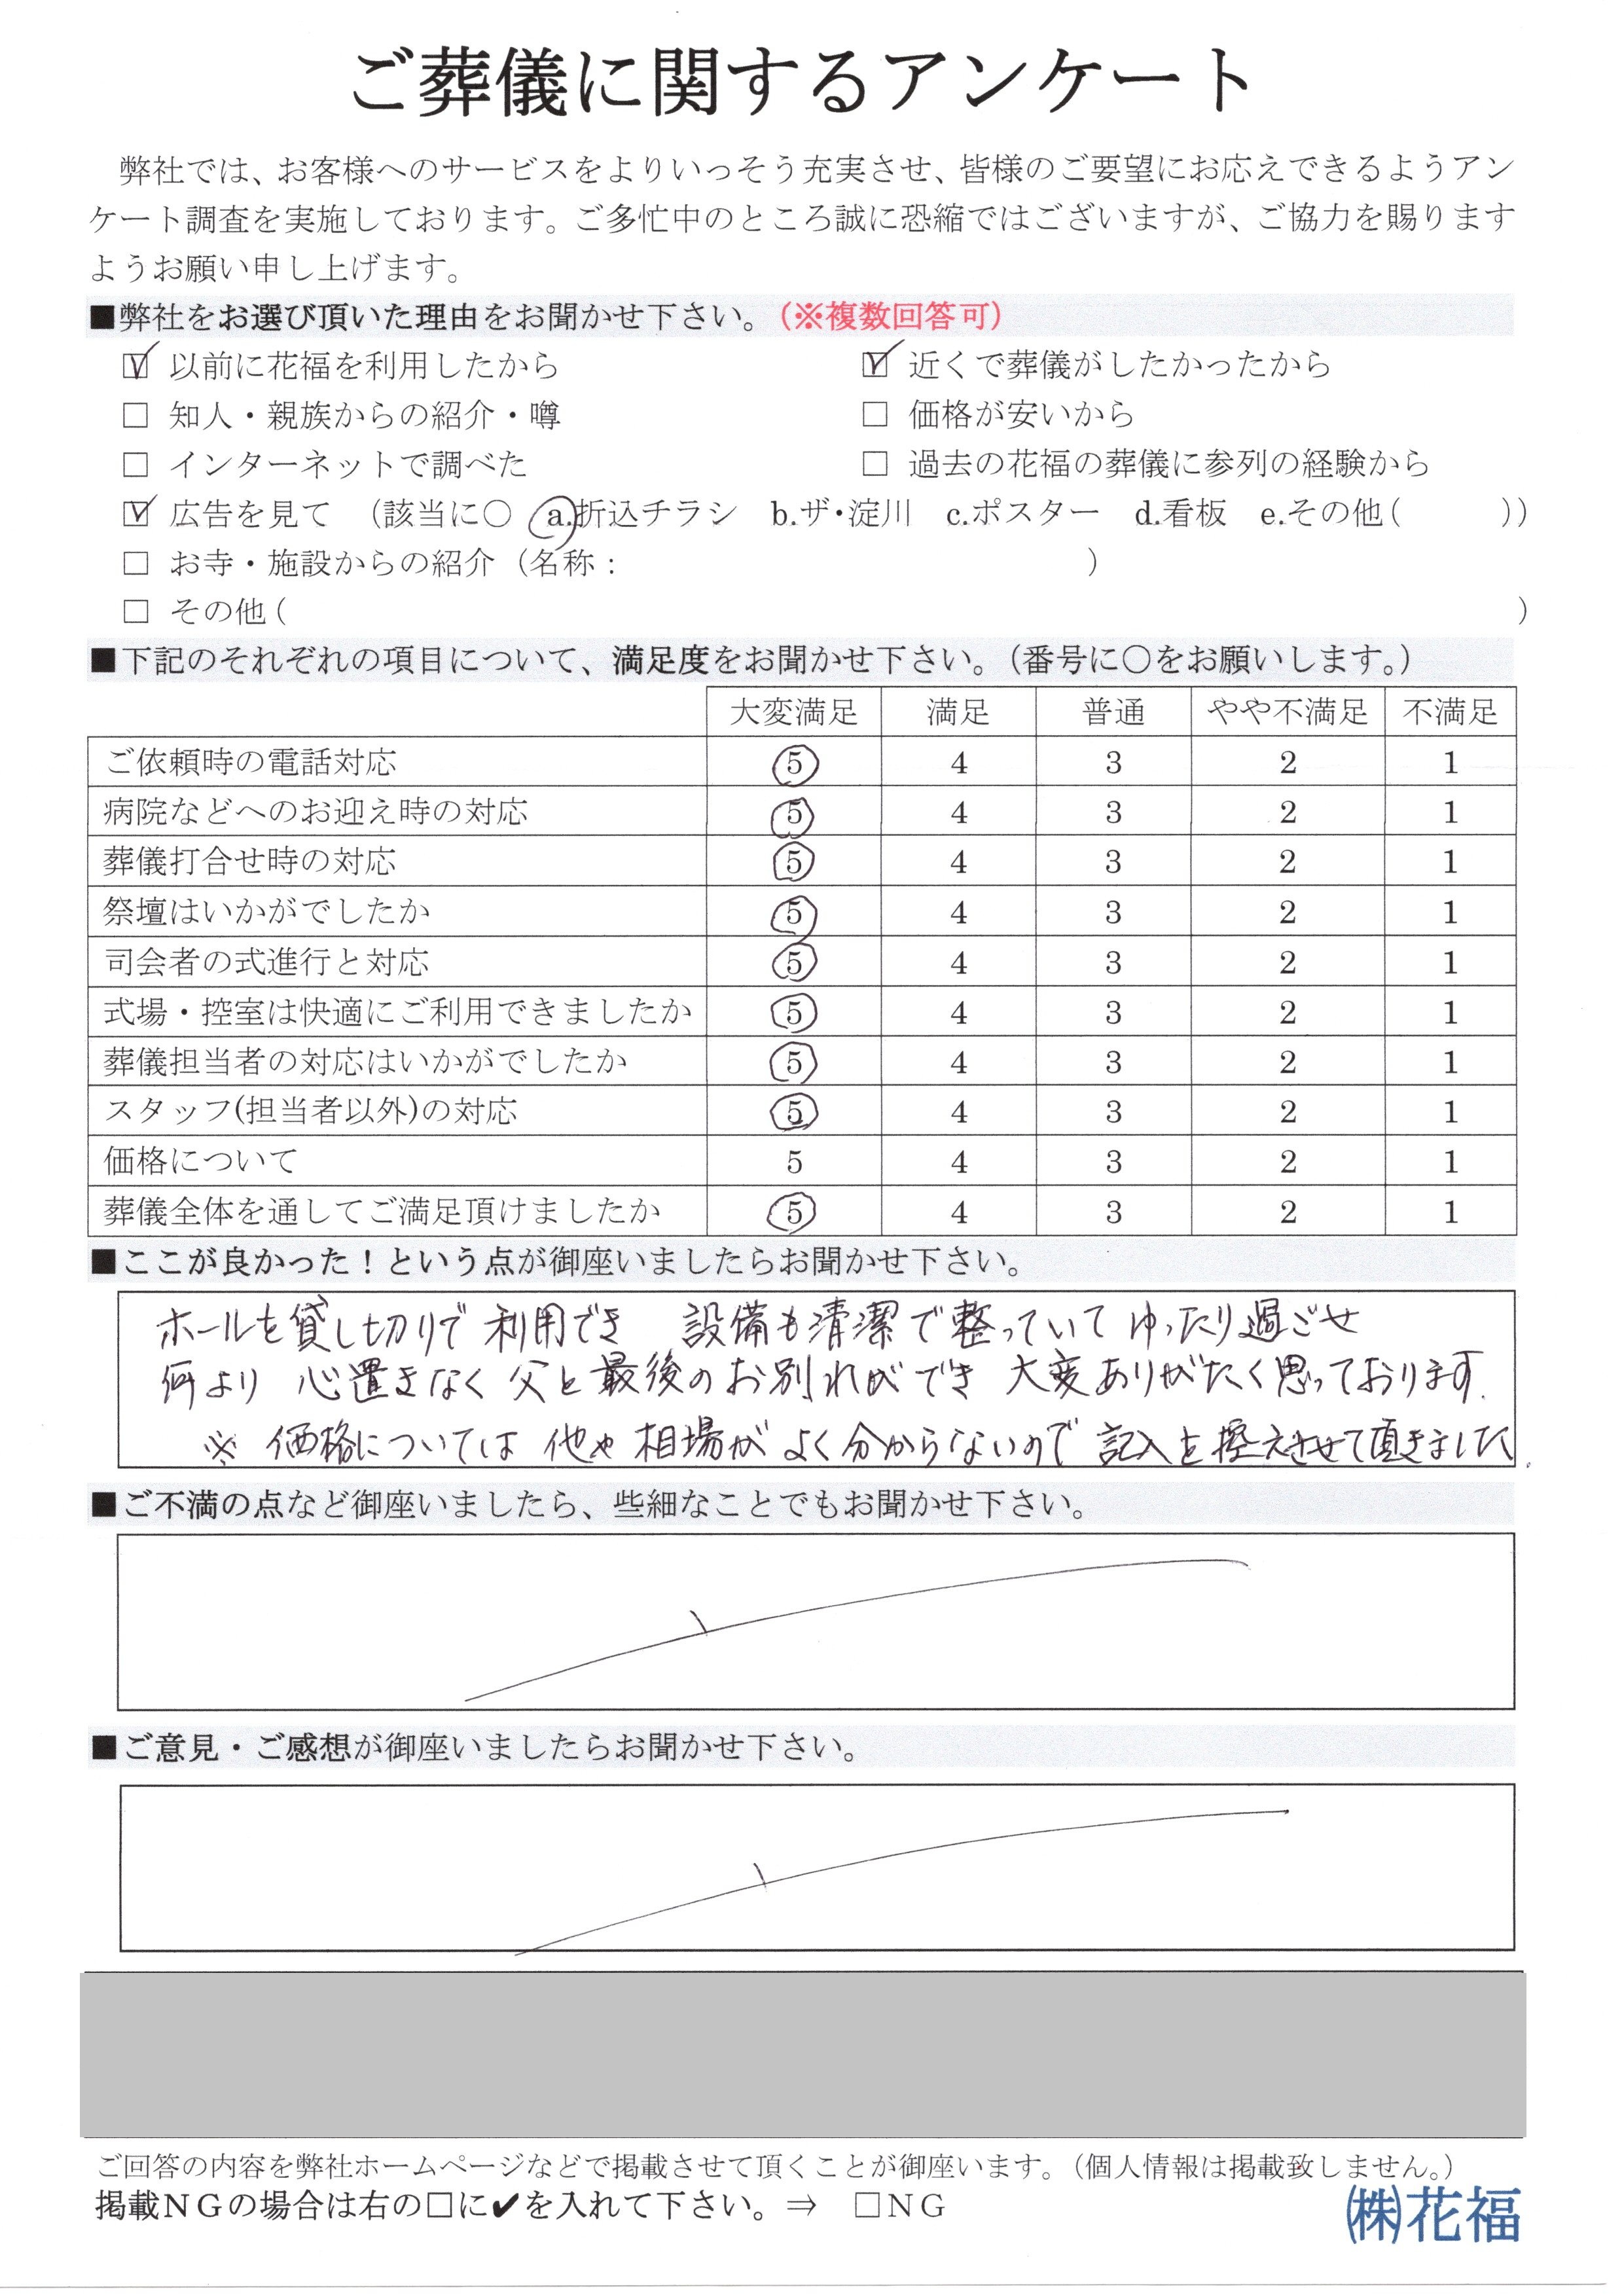 ご葬儀に関するアンケート
弊社では、お客様へのサービスをよりいっそう充実させ、皆様のご要望にお応えできるようアン
ケート調査を実施しております。ご多忙中のところ誠に恐縮ではございますが、ご協力を賜ります
ようお願い申し上げます。
■弊社をお選び頂いた理由をお聞かせ下さい。（※複数回答可）
☑ 以前に花福を利用したから ☑ 近くで葬儀がしたかったから
□ 知人・親族からの紹介・噂 □ 価格が安いから
□ インターネットで調べた □ 過去の花福の葬儀に参列の経験から
☑ 広告を見て （該当に○ a.折込チラシ b.ザ・淀川 c.ポスター d.看板 e.その他( ))
□ お寺・施設からの紹介（名称： ）
□ その他( )
■下記のそれぞれの項目について、満足度をお聞かせ下さい。（番号に○をお願いします。）
大変満足 満足 普通 やや不満足 不満足
ご依頼時の電話対応 5 4 3 2 1
病院などへのお迎え時の対応 5 4 3 2 1
葬儀打合せ時の対応 5 4 3 2 1
祭壇はいかがでしたか 5 4 3 2 1
司会者の式進行と対応 5 4 3 2 1
式場・控室は快適にご利用できましたか 5 4 3 2 1
葬儀担当者の対応はいかがでしたか 5 4 3 2 1
スタッフ(担当者以外)の対応 5 4 3 2 1
価格について 5 4 3 2 1
葬儀全体を通してご満足頂けましたか 5 4 3 2 1
■ここが良かった！という点が御座いましたらお聞かせ下さい。
ホールを貸し切りで利用でき 設備も清潔で整っていてゆったり過ごせ
何より 心置きなく父と最後のお別れができ 大変ありがたく思っております.
※ 価格については 他や相場がよく分からないので 記入を控えさせて頂きました.
■ご不満の点など御座いましたら、些細なことでもお聞かせ下さい。
■ご意見・ご感想が御座いましたらお聞かせ下さい。
ご回答の内容を弊社ホームページなどで掲載させて頂くことが御座います。（個人情報は掲載致しません。）
掲載NGの場合は右の□に✔を入れて下さい。⇒ □NG
㈱花福